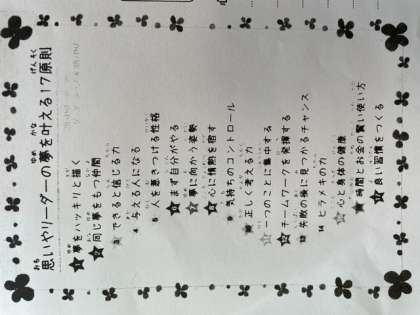 思いやリーダーの夢を叶える17原則
夢をハッキリと描く
同じ夢をもつ仲間
できると信じる力
4 与える人になる
5 人を惹きつける性格
まず自分がやる
夢に向かう姿勢
心に情熱を宿す
9 気持ちのコントロール
正しく考える力
一つのことに集中する
チームワークを発揮する
13 失敗の後に見つかるチャンス
14 ヒラメキの力
心と身体の健康
時間とお金の賢い使い方
良い習慣をつくる